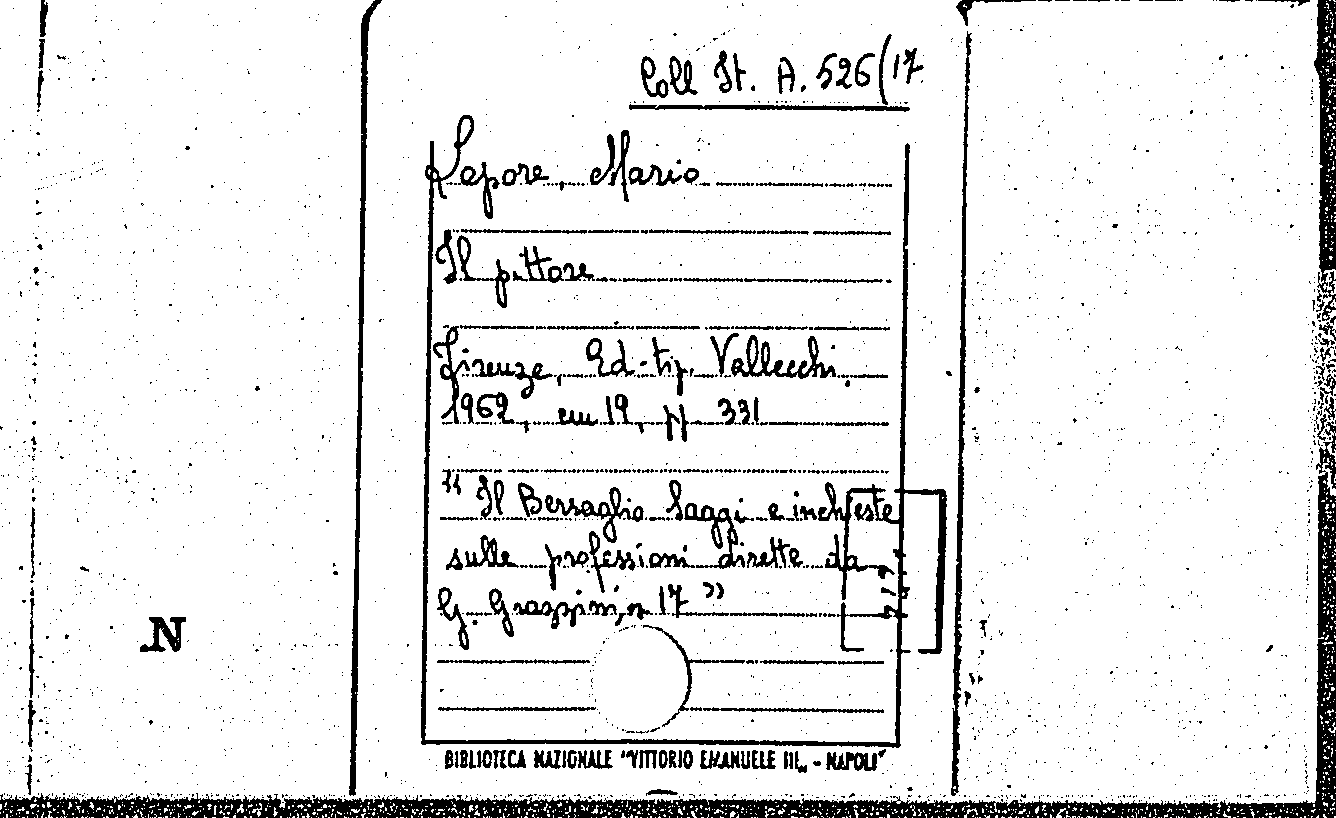 Coll It. A. 526(17
Lepore, Mario
Il pittore
Firenze, Ed-tip. Vallecchi.
1962, cm 19, pp. 331
"Il Bersaglio Saggi e inchieste
sulle professioni dirette da
G. Grazzini, n 17"
.N
BIBLIOTECA NAZIONALE "VITTORIO EMANUELE III„ - NAPOLI